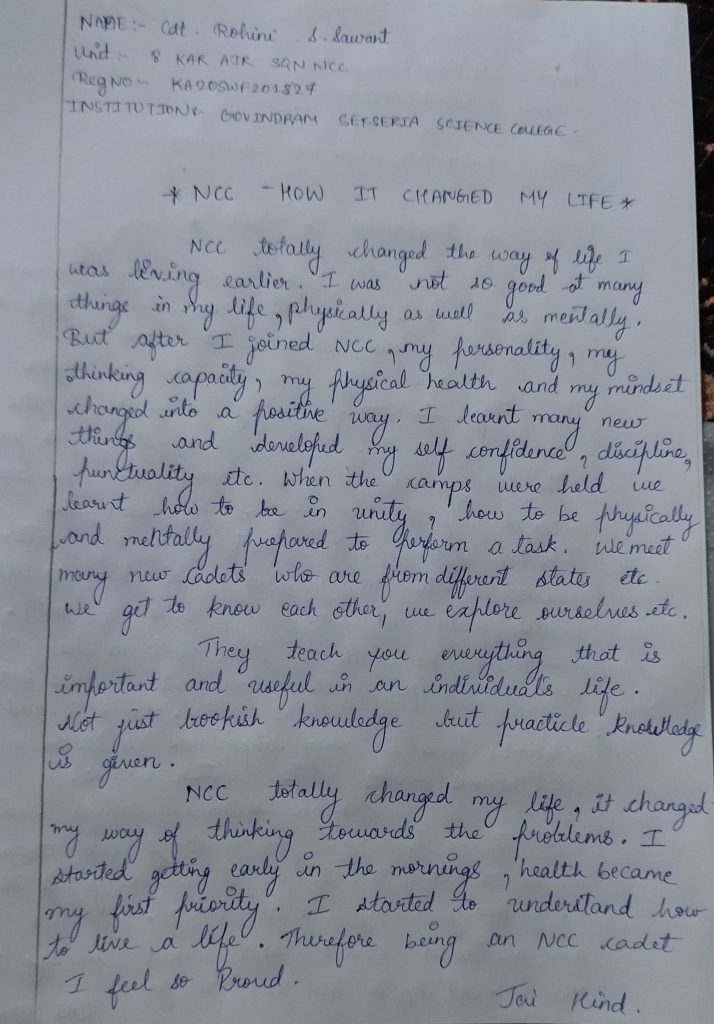 NAME:- Cdt. Rohini S. Sawant
Unit:- 8 KAR AIR SQN NCC
Reg NO:- KA20SWF201824
INSTITUTION:- GOVINDRAM SEKSERIA SCIENCE COLLEGE.
* NCC - HOW IT CHANGED MY LIFE *
NCC totally changed the way of life I
was living earlier. I was not so good at many
things in my life, physically as well as mentally.
But after I joined NCC, my personality, my
thinking capacity, my physical health and my mindset
changed into a positive way. I learnt many new
things and developed my self confidence, discipline,
punctuality etc. When the camps were held we
learnt how to be in unity, how to be physically
and mentally prepared to perform a task. We meet
many new cadets who are from different states etc.
We get to know each other, we explore ourselves etc.
They teach you everything that is
important and useful in an individual's life.
Not just bookish knowledge but practicle knowledge
is given.
NCC totally changed my life, it changed
my way of thinking towards the problems. I
started getting early in the mornings, health became
my first priority. I started to understand how
to live a life. Therefore being an NCC cadet
I feel so Proud.
Jai Hind.